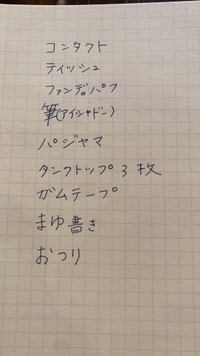 コンタクト
ティッシュ
ファンデ.パフ
筆(アイシャドー)
パジャマ
タンクトップ3枚
ガムテープ
まゆ書き
おつり